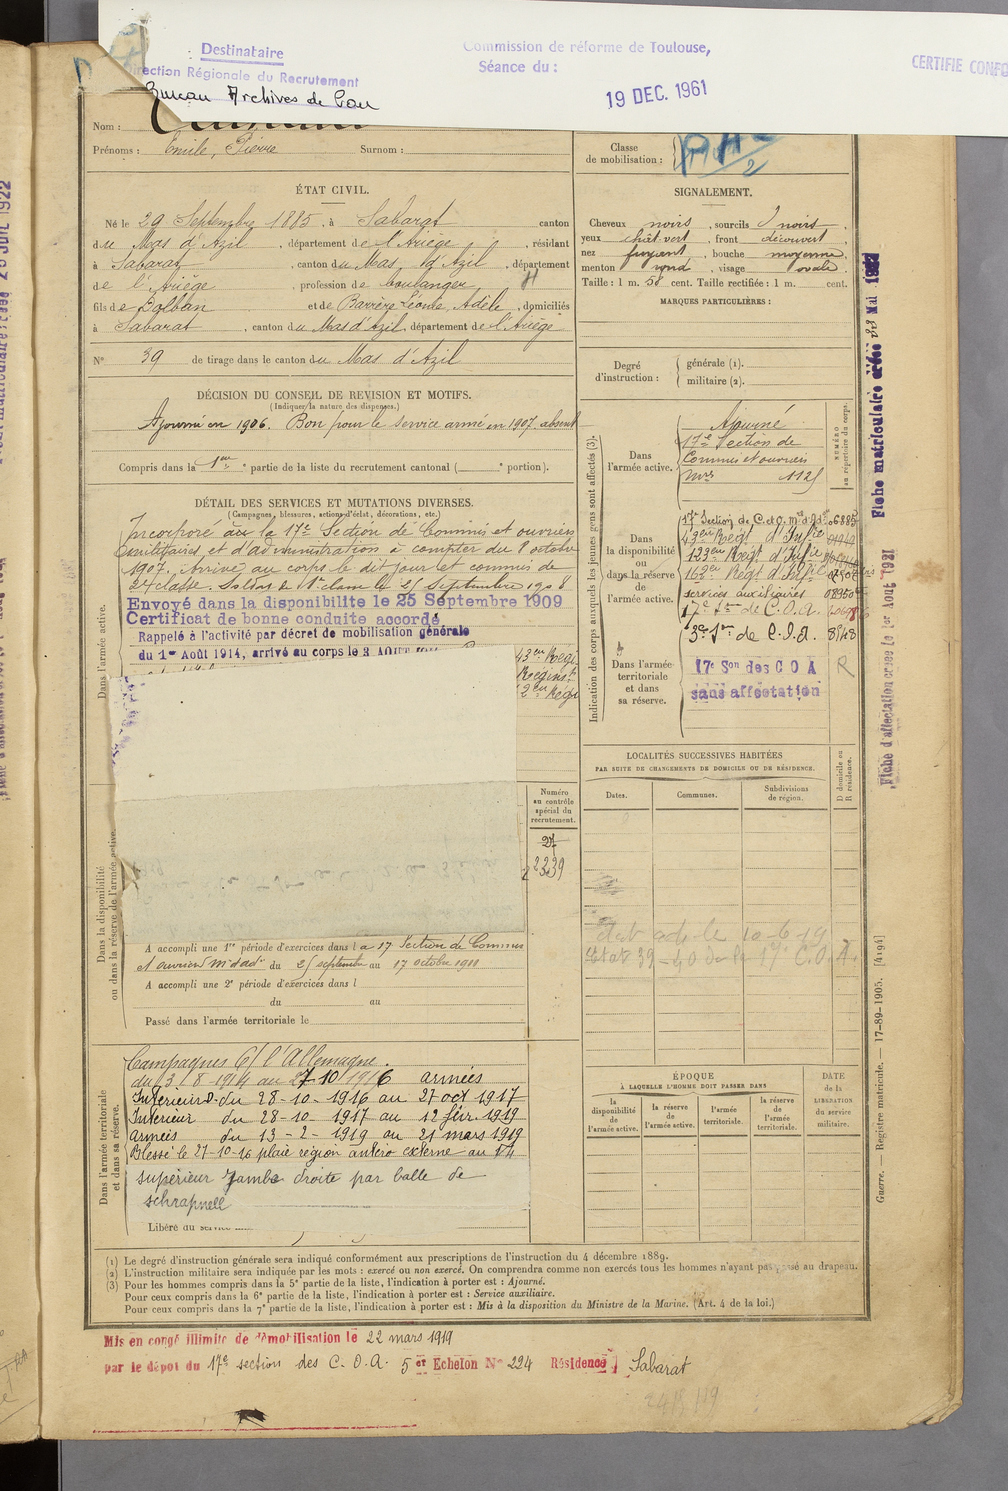 Destinataire
Direction Régionale du Recrutement
Bureau Archives de Pau
Commission de réforme de Toulouse,
Séance du :
19 DEC. 1961
CERTIFIE CONFO
Nom :
Prénoms : Emile, Pierre Surnom :
Classe
de mobilisation :
ÉTAT CIVIL.
Né le 29 Septembre 1885, à Sabarat canton
du Mas d'Azil, département de l'Ariège, résidant
à Sabarat, canton du Mas d'Azil, département
de l'Ariège, profession de boulanger
fils de Balban et de Barrère Léonie, Adèle, domiciliés
à Sabarat, canton du Mas d'Azil, département de l'Ariège
N° 39 de tirage dans le canton du Mas d'Azil
SIGNALEMENT.
Cheveux noirs, sourcils noirs,
yeux chât-vert, front découvert,
nez fuyant, bouche moyenne,
menton rond, visage ovale.
Taille : 1 m. 58 cent. Taille rectifiée : 1 m. cent.
MARQUES PARTICULIÈRES :
Degré
d'instruction :
générale (1).
militaire (2).
DÉCISION DU CONSEIL DE REVISION ET MOTIFS.
(Indiquer la nature des dispenses.)
Ajourné en 1906. Bon pour le service armé en 1907. absent
Compris dans la 1ere partie de la liste du recrutement cantonal ( e portion).
DÉTAIL DES SERVICES ET MUTATIONS DIVERSES.
(Campagnes, blessures, actions d'éclat, décorations, etc.)
Incorporé à la 17e Section de Commis et ouvriers
militaires et d'administration à compter du 8 octobre
1907. Arrivé au corps le dit jour et commis de
2e classe. Soldat de 1e classe le 25 Septembre 1908
Envoyé dans la disponibilité le 25 Septembre 1909
Certificat de bonne conduite accordé
Rappelé à l'activité par décret de mobilisation générale
du 1er Août 1914, arrivé au corps le 3 AOUT
43e Régi
Régim
Régi
Dans l'armée active.
Indication des corps auxquels les jeunes gens sont affectés (3).
NUMÉRO
au répertoire du corps.
Dans
l'armée active.
Ajourné
17e Section de
Commis et ouvriers
mres 1125
Dans
la disponibilité
ou
dans la réserve
de
l'armée active.
17e Section de C. et O. m. d'Ad
Regt d'Infie
123eme Regt d'Infie
Regt d'Infie
services auxiliaires
17e Son de C.O.A.
Son de C.O.A. 8548
Dans l'armée
territoriale
et dans
sa réserve.
17e Son des C O A
sans affectation
R
LOCALITÉS SUCCESSIVES HABITÉES
PAR SUITE DE CHANGEMENTS DE DOMICILE OU DE RÉSIDENCE.
Dates.
Communes.
Subdivisions
de région.
D domicile ou
R résidence.
Numéro
au contrôle
spécial du
recrutement.
27
2239
Dans la disponibilité
ou dans la réserve de l'armée active.
A accompli une 1re période d'exercices dans la 17 Section de Commis
et ouvriers m d'ad du 25 septembre au 17 octobre 1911
A accompli une 2e période d'exercices dans l
du au
Passé dans l'armée territoriale le
Dans l'armée territoriale
et dans sa réserve.
Campagnes C/ l'Allemagne.
du 3-8-1914 au 27-10-1916 armées
Intérieur du 28-10-1916 au 27 oct 1917
Intérieur du 28-10-1917 au 12 fév. 1919
armées du 13-2-1919 au 21 mars 1919
Blessé le 27-10-16 plaie région antéro externe au 1/4
supérieur jambe droite par balle de
schrapnell
Libéré du service
ÉPOQUE
À LAQUELLE L'HOMME DOIT PASSER DANS
la
disponibilité
de
l'armée active.
la réserve
de
l'armée active.
l'armée
territoriale.
la réserve
de
l'armée
territoriale.
DATE
de la
LIBÉRATION
du service
militaire.
(1) Le degré d'instruction générale sera indiqué conformément aux prescriptions de l'instruction du 4 décembre 1889.
(2) L'instruction militaire sera indiquée par les mots : exercé ou non exercé. On comprendra comme non exercés tous les hommes n'ayant pas passé au drapeau.
(3) Pour les hommes compris dans la 5e partie de la liste, l'indication à porter est : Ajourné.
Pour ceux compris dans la 6e partie de la liste, l'indication à porter est : Service auxiliaire.
Pour ceux compris dans la 7e partie de la liste, l'indication à porter est : Mis à la disposition du Ministre de la Marine. (Art. 4 de la loi.)
Mis en congé illimité de démobilisation le 22 mars 1919
par le dépôt du 17e section des C. O. A. 5er Echelon N° 224 Résidence Sabarat
Fiche matriculaire
Fiche d'affectation créée le 1er Août 1921
Guerre. — Registre matricule. — 17-89-1905. [4194]